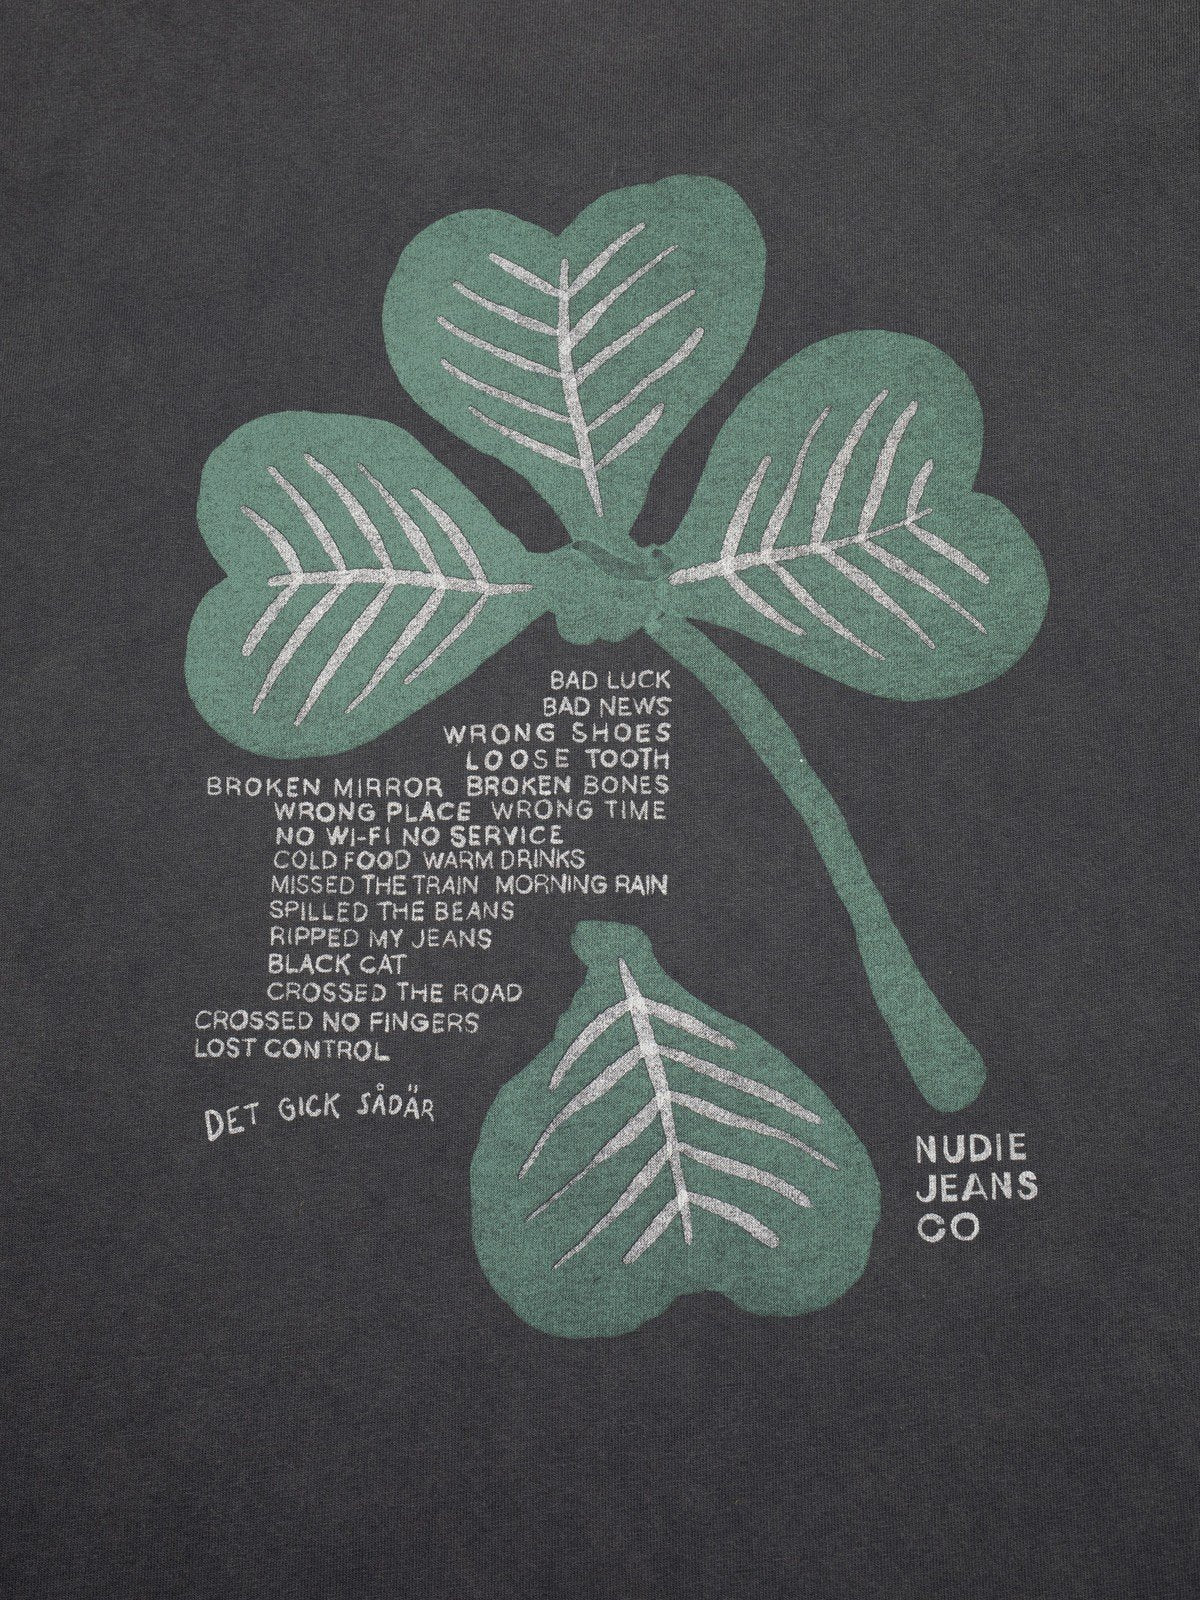 BAD LUCK
BAD NEWS
WRONG SHOES
LOOSE TOOTH
BROKEN MIRROR BROKEN BONES
WRONG PLACE WRONG TIME
NO WI-FI NO SERVICE
COLD FOOD WARM DRINKS
MISSED THE TRAIN MORNING RAIN
SPILLED THE BEANS
RIPPED MY JEANS
BLACK CAT
CROSSED THE ROAD
CROSSED NO FINGERS
LOST CONTROL
DET GICK SÅDÄR
NUDIE
JEANS
CO